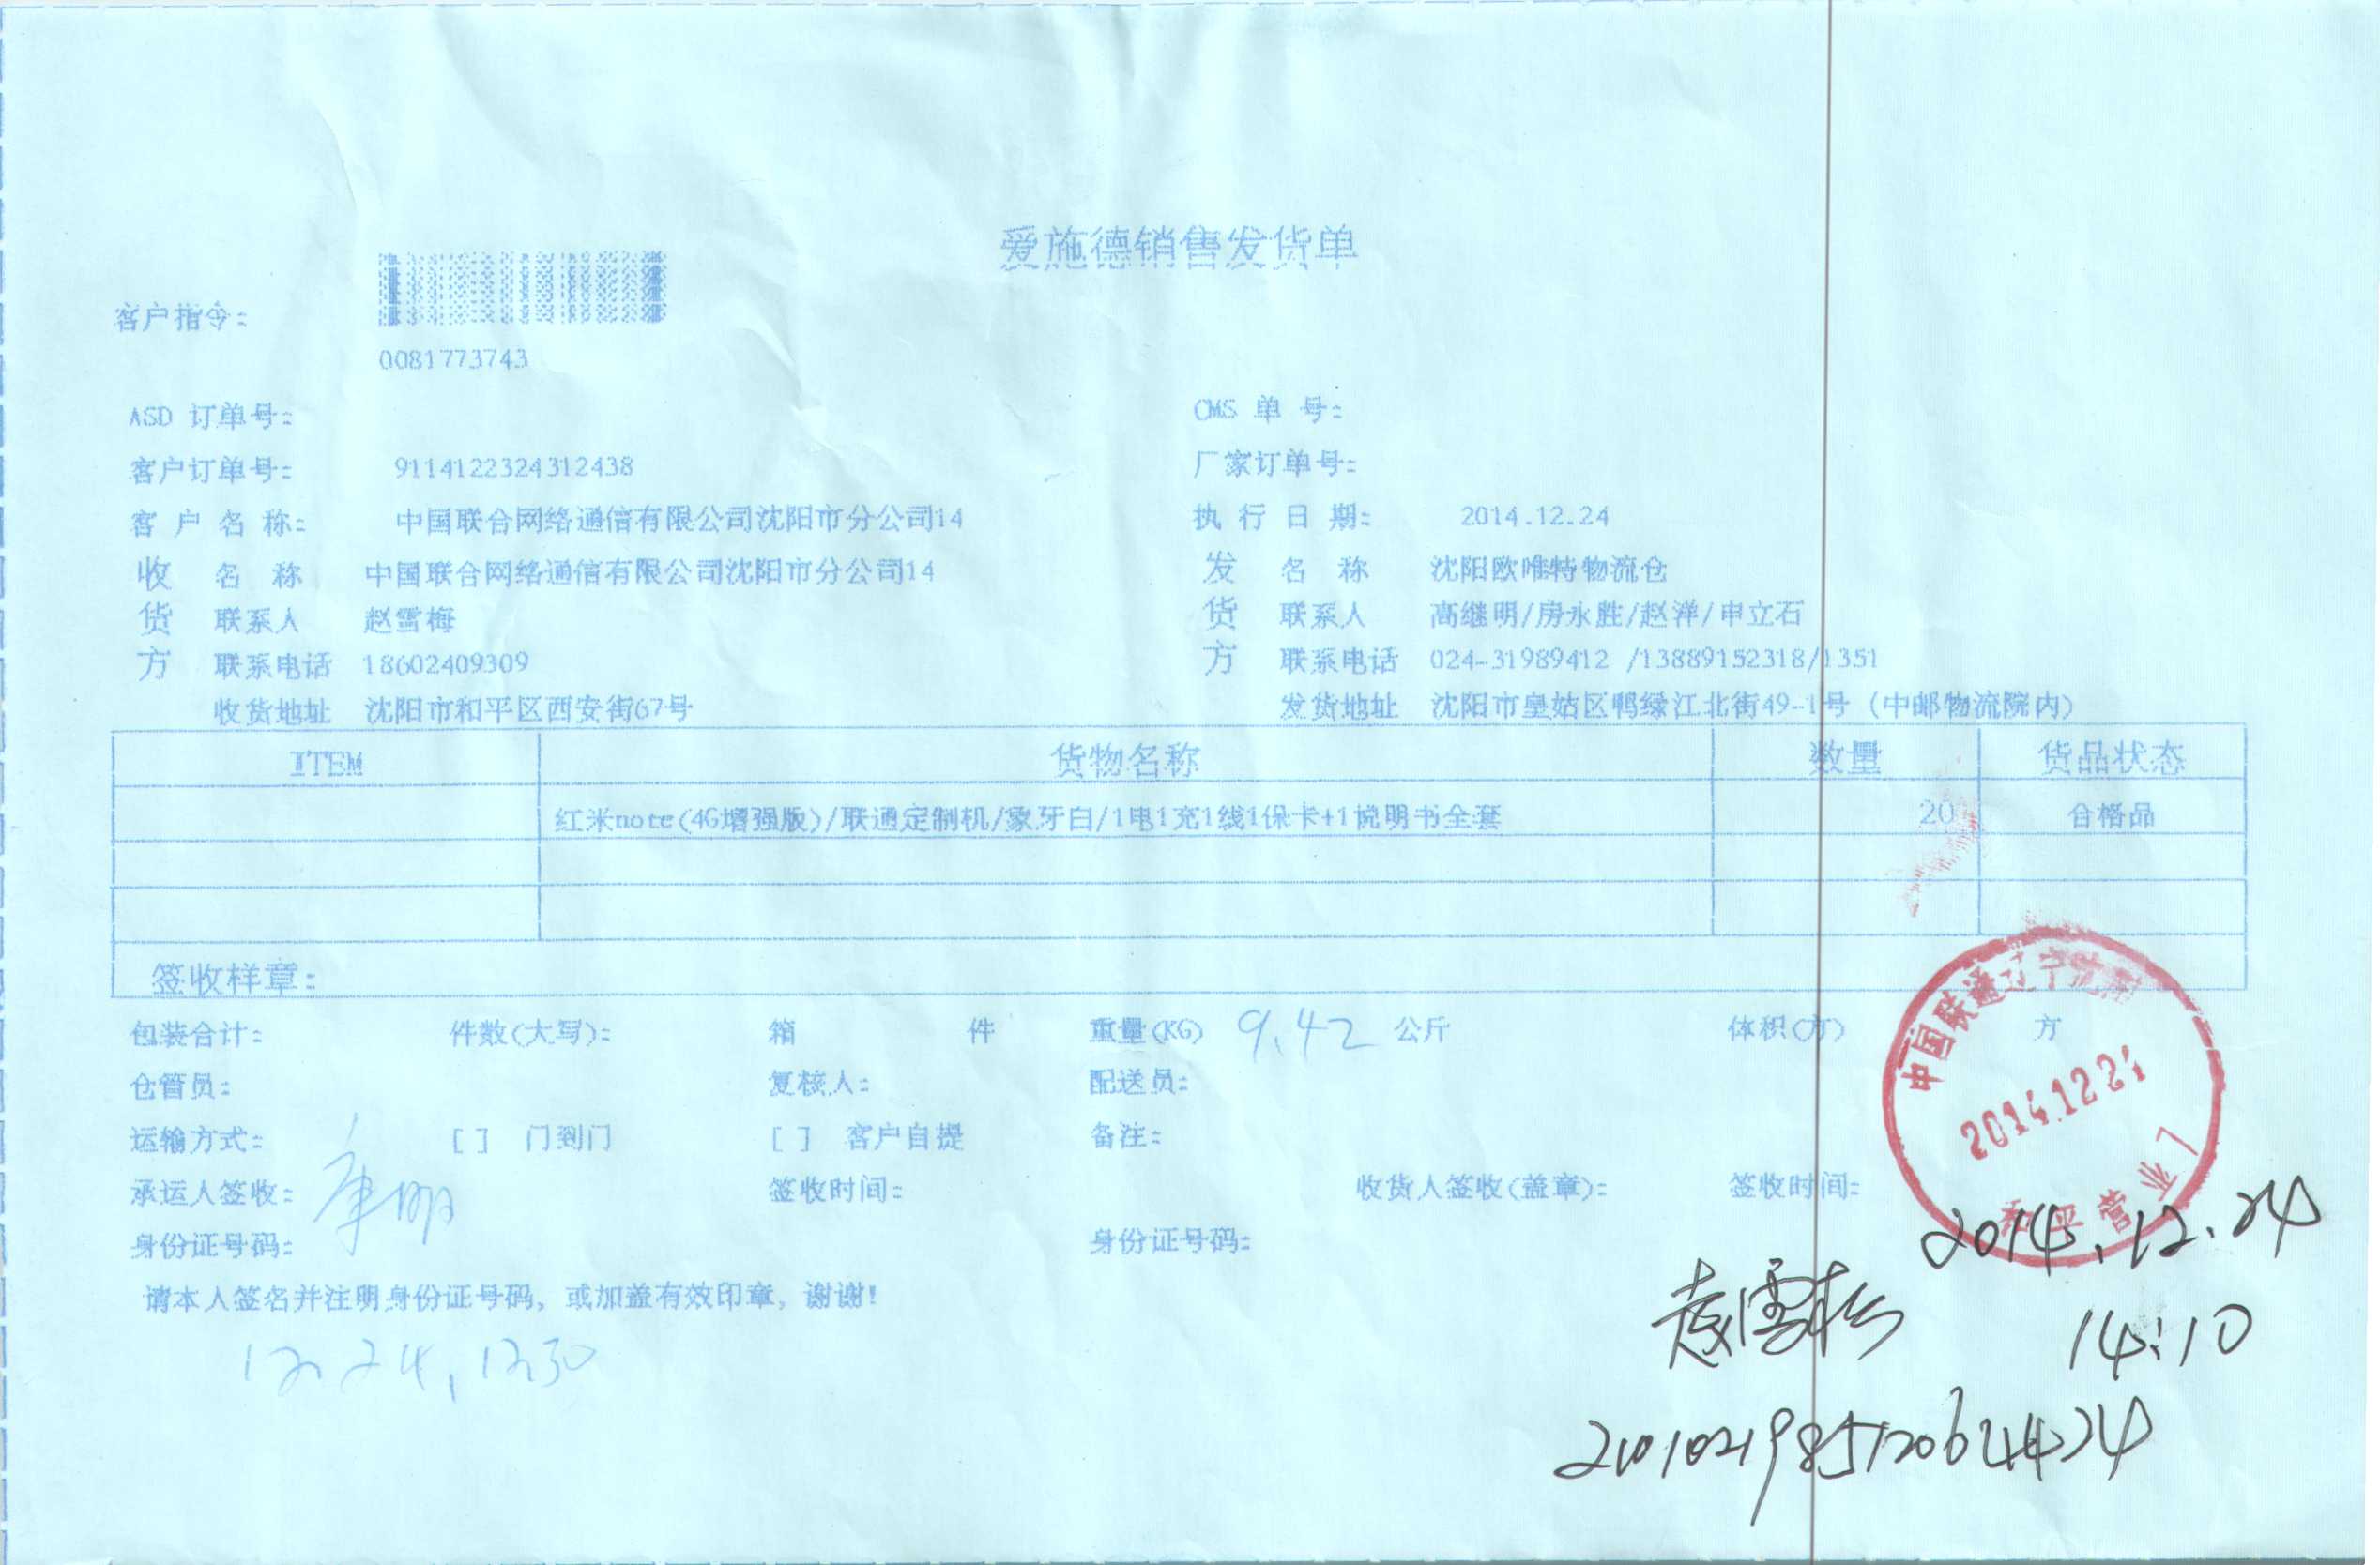 爱施德销售发货单
客户指令:
0081773743
ASD 订单号: CMS 单 号:
客户订单号: 9114122324312438 厂家订单号:
客 户 名 称: 中国联合网络通信有限公司沈阳市分公司14 执 行 日 期: 2014.12.24
收 名 称 中国联合网络通信有限公司沈阳市分公司14 发 名 称 沈阳欧唯特物流仓
货 联系人 赵雪梅 货 联系人 高继明/房永胜/赵洋/申立石
方 联系电话 18602409309 方 联系电话 024-31989412 /13889152318/1351
收货地址 沈阳市和平区西安街67号 发货地址 沈阳市皇姑区鸭绿江北街49-1号 (中邮物流院内)
ITEM 货物名称 数量 货品状态
红米note(4G增强版)/联通定制机/象牙白/1电1充1线1保卡+1说明书全套 20 合格品
签收样章:
包装合计: 件数(大写): 箱 件 重量(KG) 9.42 公斤 体积(方) 方
仓管员: 复核人: 配送员:
运输方式: [ ] 门到门 [ ] 客户自提 备注:
承运人签收: 签收时间: 收货人签收(盖章): 签收时间:
身份证号码: 身份证号码:
请本人签名并注明身份证号码, 或加盖有效印章, 谢谢!
中国联通辽宁沈阳
2014.12.24
和平营业厅
2014.12.24
14:10
12 24, 1230